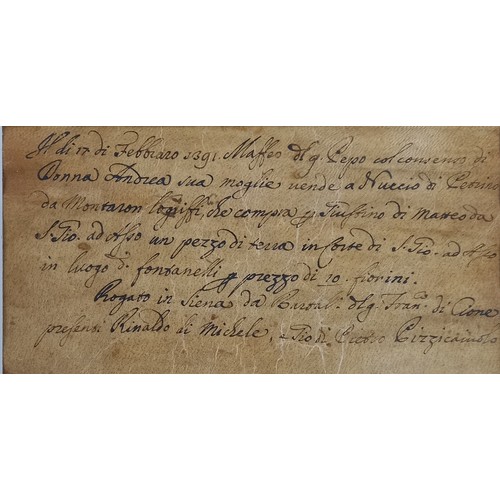 Il di 17 di Febbraio 1391. Maffeo dl q. Pepo col consenso di
Donna Andrea sua moglie vende a Nuccio di Peonino
da Montaron che compra p Giustino di Matteo da
S. Gio. ad Asso un pezzo di terra in Corte di S. Gio. ad Asso
in luogo d. fontanelli p prezzo di 10. fiorini.
Rogato in Siena da Bartal. dl q. Fran. di Cione
presenti Rinaldo di Michele, e Gio di Pizzicaiuolo